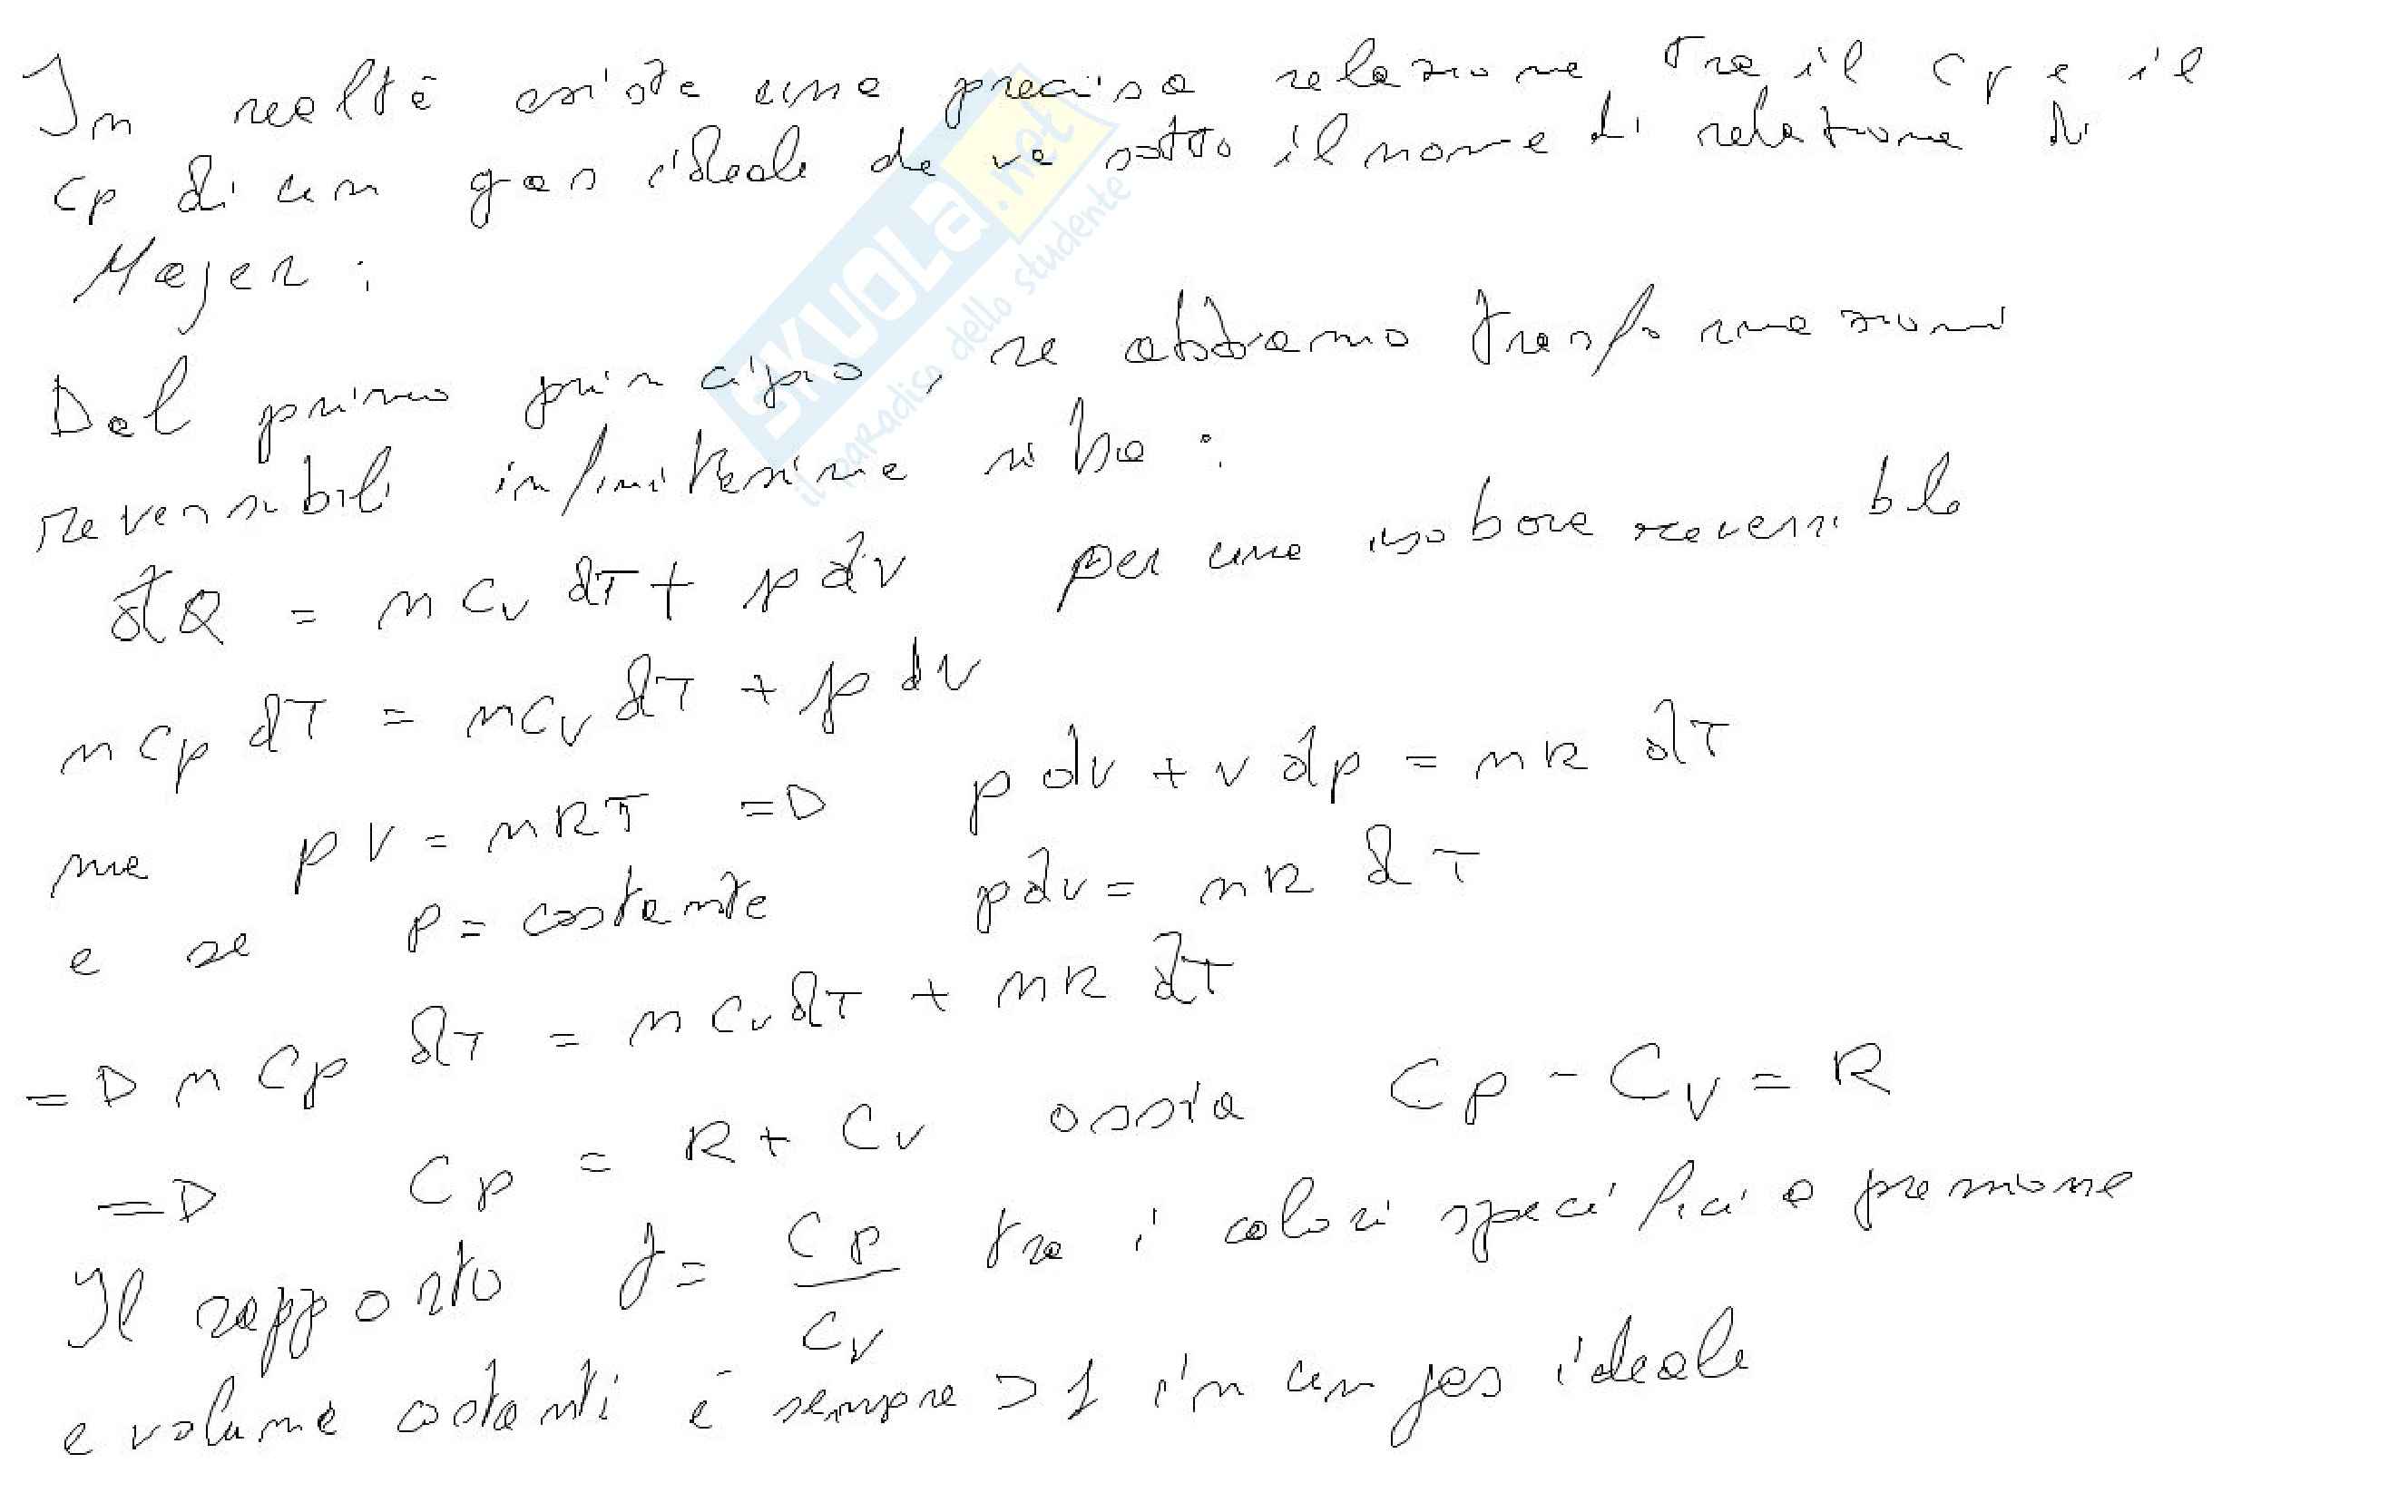 In realtà esiste una precisa relazione tra il cv e il
cp di un gas ideale che va sotto il nome di relazione di
Majer :
Dal primo principio, se abbiamo trasformazioni
reversibili infinitesime si ha :
đQ = n cv dT + p dv per una isobara reversibile
n cp dT = n cv dT + p dv
ma pV = nRT => p dv + v dp = nR dT
e se p = costante p dv = nR dT
=> n cp dT = n cv dT + nR dT
=> cp = R + cv ossia cp - cv = R
Il rapporto γ = cp/cv tra i calori specifici a pressione
e volume costanti è sempre > 1 in un gas ideale
SKUOLA.net
il paradiso dello studente